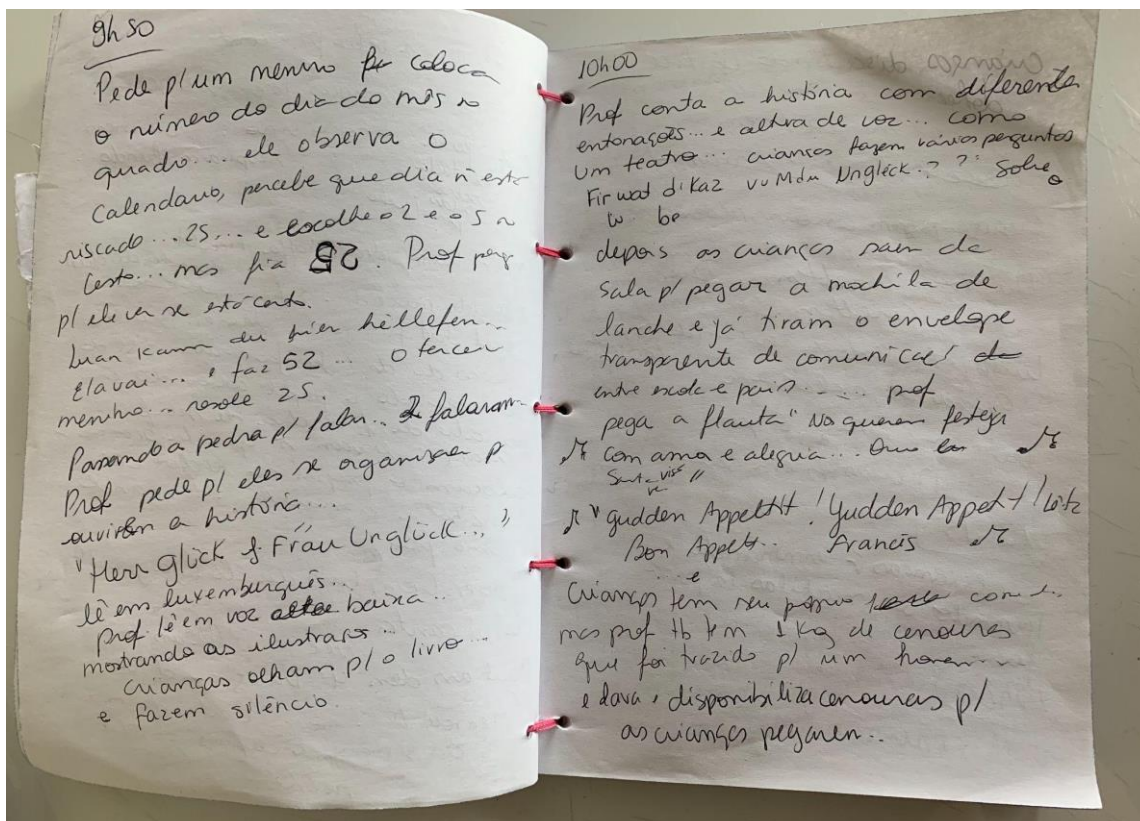 9h50
Pede p/ um menino coloca
o número do dia do mês no
quadro... ele observa o
Calendario, percebe que dia ñ está
riscado... 25... e escolhe o 2 e o 5 no
Cesto... mas fia 25. Prof perg
p/ ele ver se está certo.
Luan kann du hier hëllefen...
Ela vai..., e faz 52... o tercer
menino... resole 25.
Passando a pedra p/ falar... 2 falaram
Prof pede p/ eles se organizar p
ouvirem a história...
"Herr Glück & Frau Unglück..."
lê em luxemburguês..
prof lê em voz baixa..
mostrando as ilustraçoes...
crianças olham p/ o livro...
e fazem silêncio.
10h00
Prof conta a história com diferentes
entonações... e altura de voz... como
um teatro... crianças fazem várias perguntas
Firwat di Kaz vu Mdm Ungléck..? ? Sobre
o
depois as crianças saem da
Sala p/ pegar a mochila de
lanche e já tiram o envelope
transparente de
entre escola e pais..... prof
pega a flauta "Nos queremos festejar
♪ com amor e alegria... ♪
♪ "gudden Appetitt! Gudden Appetit!
Bon Appetit.. Francis ♪
e
Crianças tem seu próprio
mas prof tb tem 1 Kg de cenouras
que foi trazido p/ um
e dava, disponibiliza cenouras p/
as crianças pegarem..